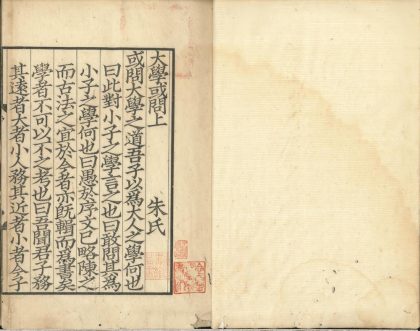 大學或問上
朱氏
或問大學之道吾子以爲大人之學何也
曰此對小子之學言之也曰敢問其爲
小子之學何也曰愚於序文已略陳之
而古法之宜於今者亦既輯而爲書矣
學者不可以不之考也曰吾聞君子務
其遠者大者小人務其近者小者今子